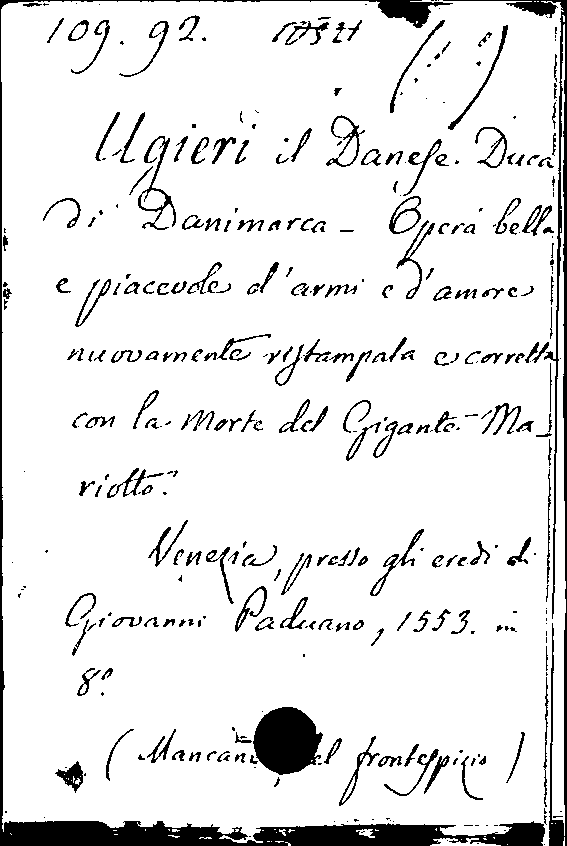 109. 92.
Ugieri il Danese. Duca
di Danimarca - Opera bella
e piacevole d'armi e d'amore
nuovamente ristampata e corretta
con la Morte del Gigante Ma-
riotto.
Venezia, presso gli eredi di
Giovanni Paduano, 1553. in
8.º
( del frontespizio )